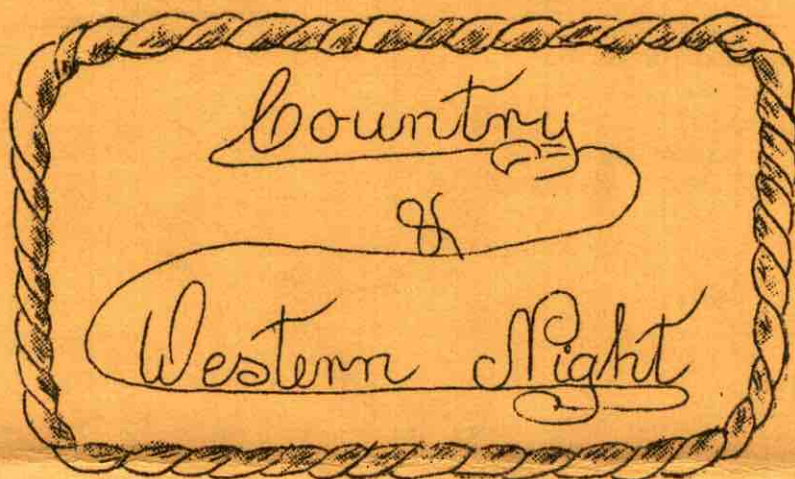 Country
&
Western Night